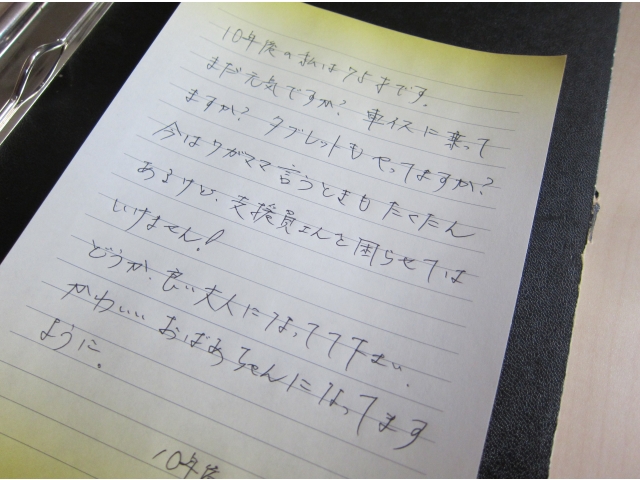 10年後の私は73才です。
まだ元気ですか? 車イスに乗って
ますか? タブレットもやってますか?
今はワガママ言うときもたくさん
あるけど、支援員さんを困らせては
いけません!
どうか、良い大人になって下さい。
かわいいおばあちゃんになってます
ように。
10年後